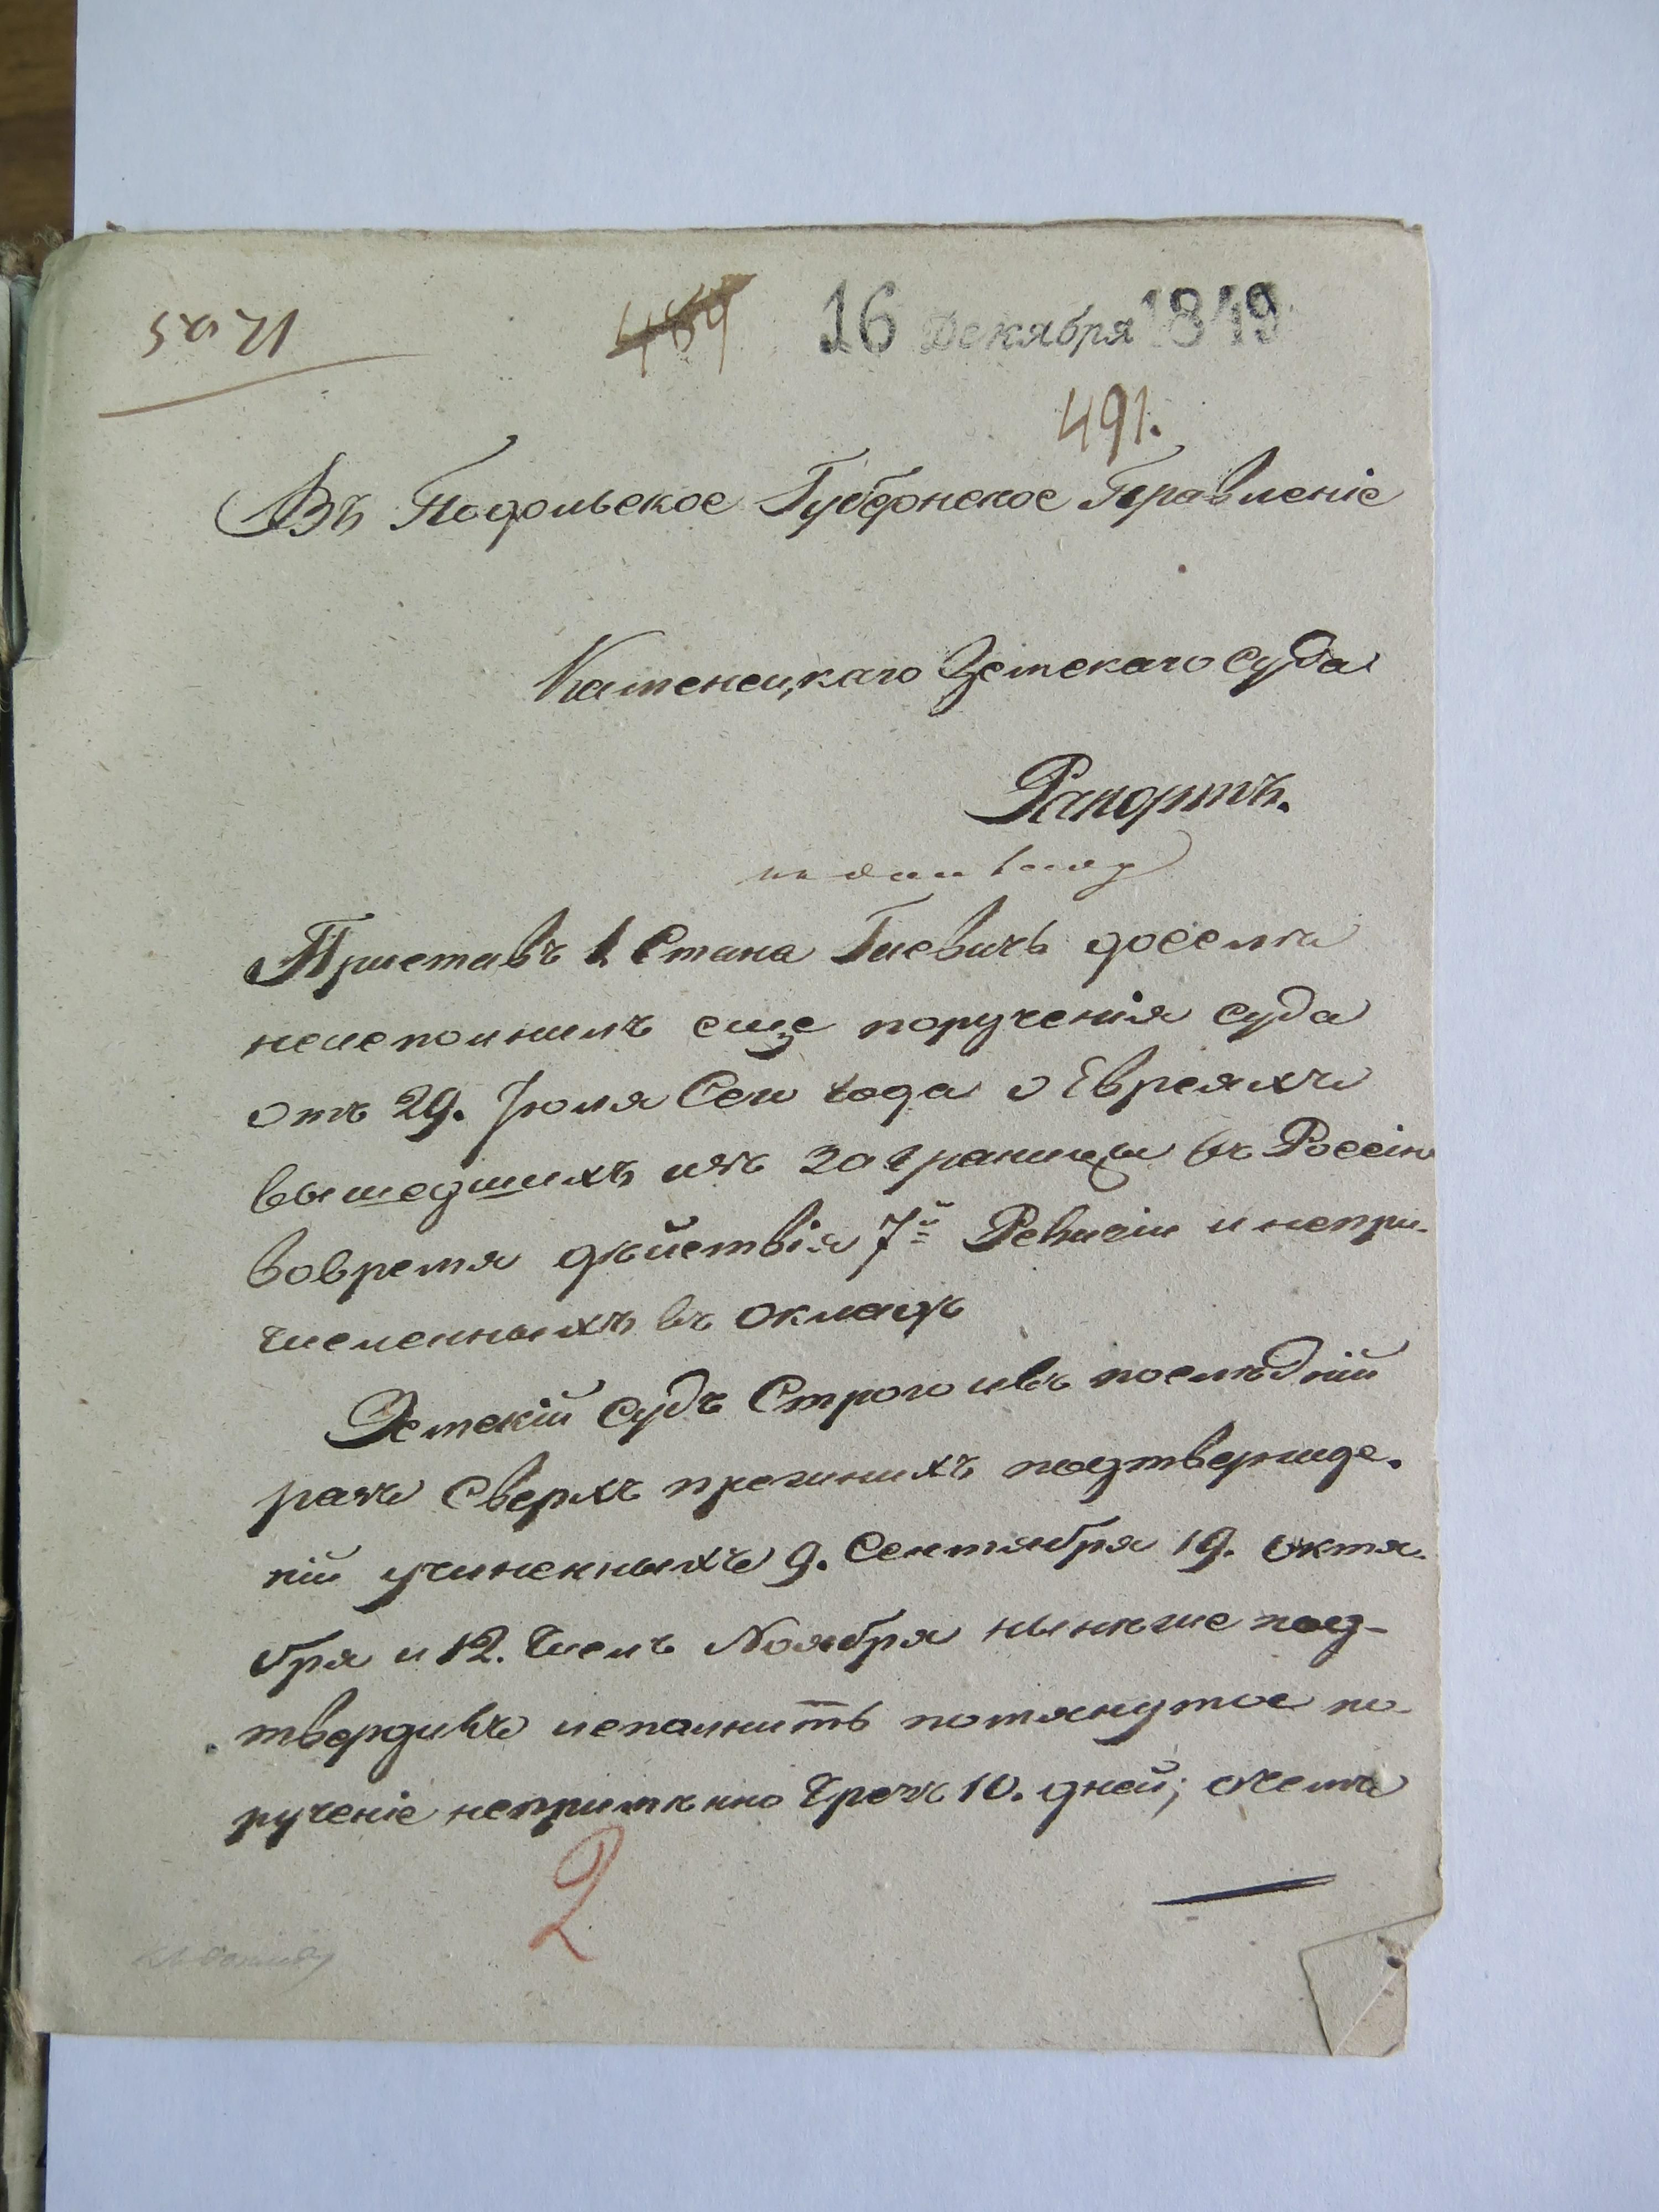 489 16 Декабря 1849
491.
Въ Подольское Губернское Правленіе
Каменецкаго Земскаго Суда
Рапортъ.
Приставъ 1 Стана Гневичъ доселѣ
неисполнилъ еще порученія Суда
отъ 29. Іюля Сего года о Евреяхъ
вышедшихъ изъ заграницы въ Россію
вовремя дѣйствія 7й Ревизіи и непри-
численныхъ въ окладъ
Земскій Судъ Строго ивъ послѣдній
разъ Сверхъ прежнихъ подтвержде-
ній учиненныхъ 9. Сентября 19. октя-
бря и 12. Числъ Ноября нынѣже под-
твердивъ исполнить помянутое по-
рученіе непримѣнно Чрезъ 10. дней; очемъ
2